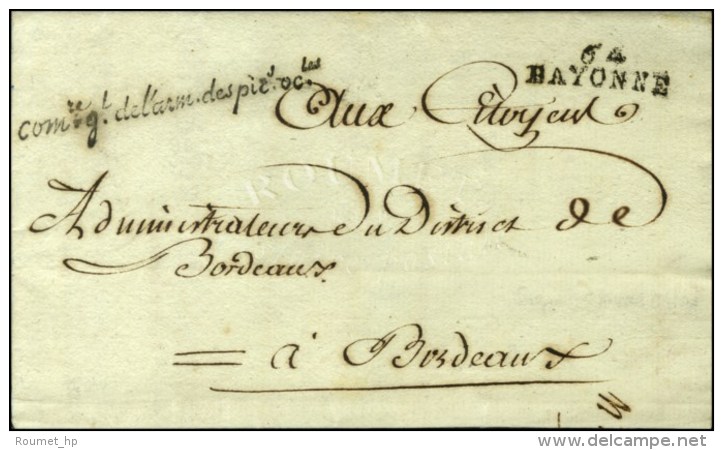 comre. gl. de l'arm. des pice. ocles.
64
BAYONNE
Aux Citoyens
Administrateurs Du District de
Bordeaux.
= à Bordeaux
Roumet_hp
© delcampe.net